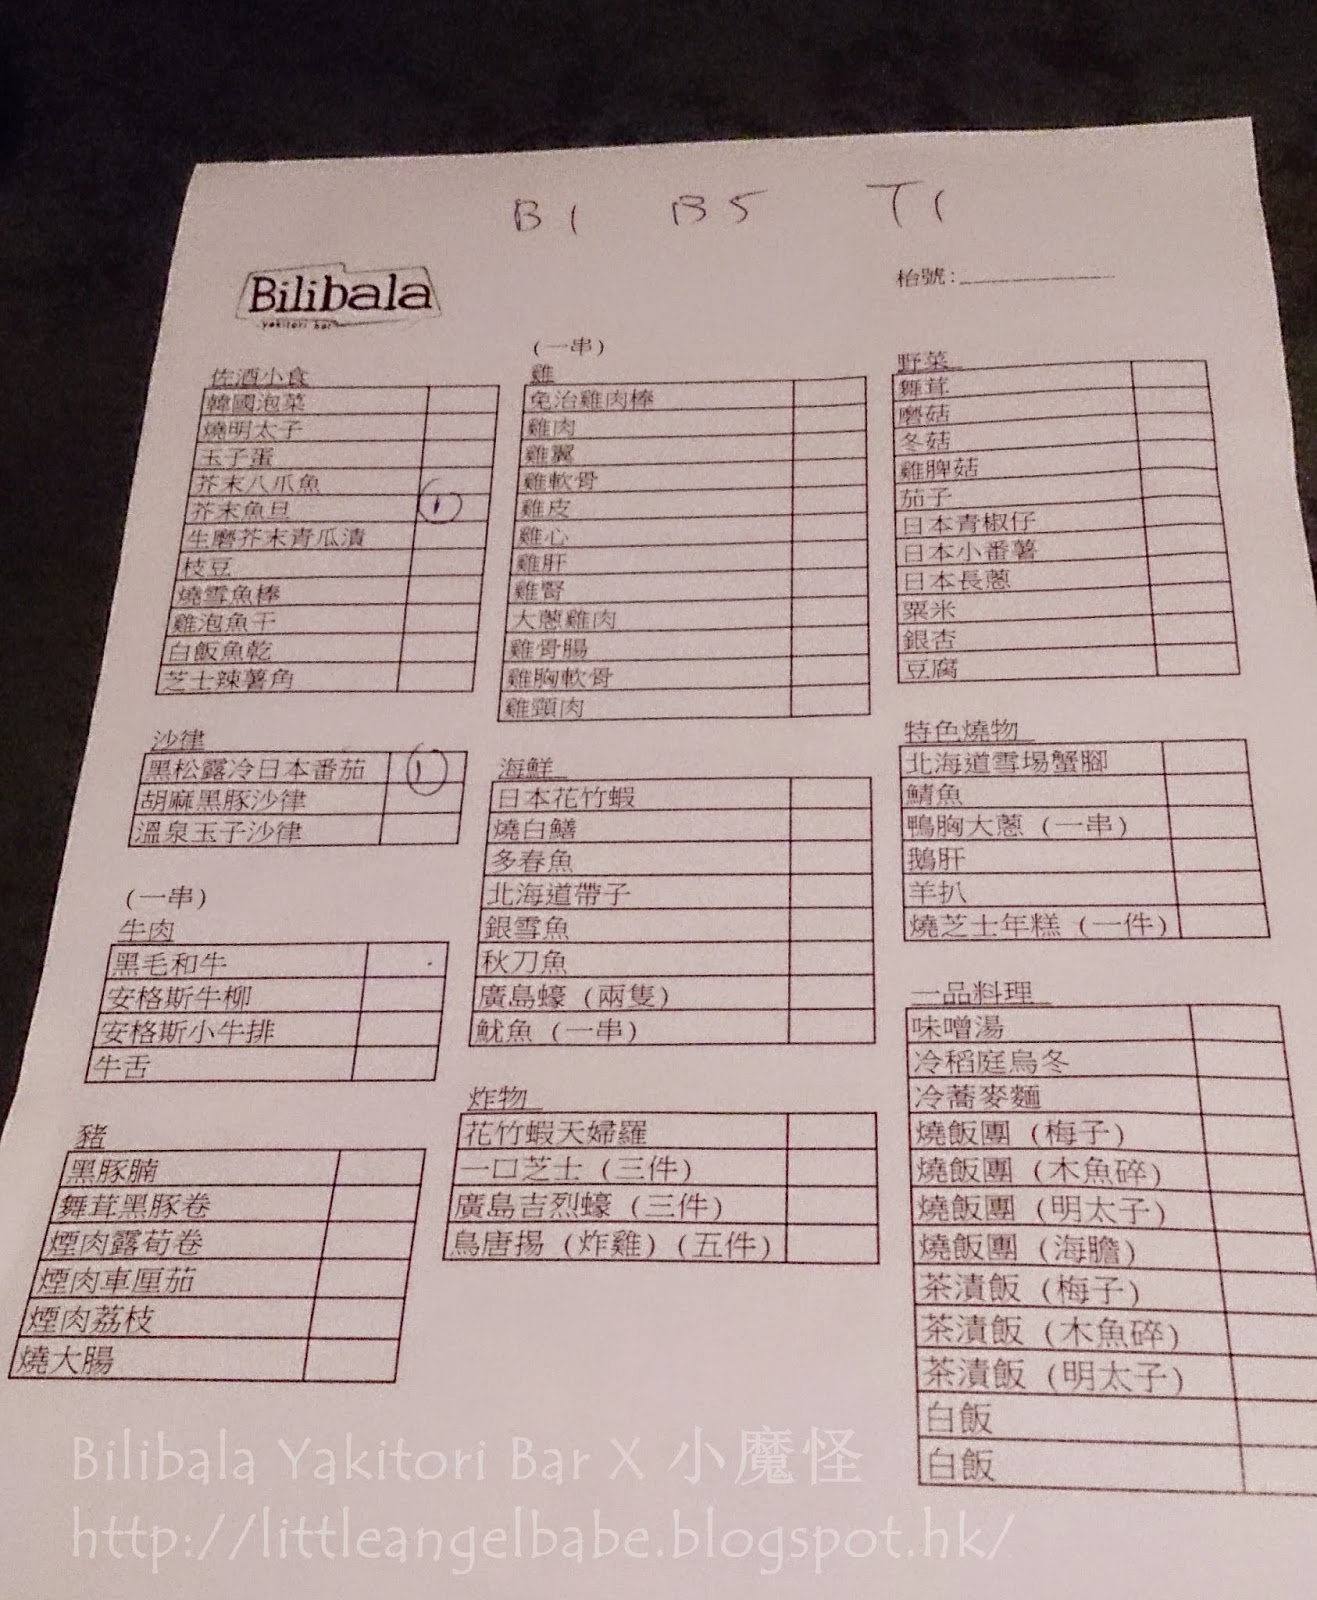 B1 B5 T1
Bilibala
yakitori bar
枱號:
佐酒小食
韓國泡菜
燒明太子
玉子蛋
芥末八爪魚
芥末魚旦 1
生磨芥末青瓜漬
枝豆
燒雪魚棒
雞泡魚干
白飯魚乾
芝士辣薯角
沙律
黑松露冷日本番茄 1
胡麻黑豚沙律
溫泉玉子沙律
(一串)
牛肉
黑毛和牛
安格斯牛柳
安格斯小牛排
牛舌
豬
黑豚腩
舞茸黑豚卷
煙肉露荀卷
煙肉車厘茄
煙肉荔枝
燒大腸
(一串)
雞
免治雞肉棒
雞肉
雞翼
雞軟骨
雞皮
雞心
雞肝
雞腎
大蔥雞肉
雞骨腸
雞胸軟骨
雞頸肉
海鮮
日本花竹蝦
燒白鱔
多春魚
北海道帶子
銀雪魚
秋刀魚
廣島蠔 (兩隻)
魷魚 (一串)
炸物
花竹蝦天婦羅
一口芝士 (三件)
廣島吉烈蠔 (三件)
鳥唐揚 (炸雞) (五件)
野菜
舞茸
磨菇
冬菇
雞脾菇
茄子
日本青椒仔
日本小番薯
日本長蔥
粟米
銀杏
豆腐
特色燒物
北海道雪場蟹腳
鯖魚
鴨胸大蔥 (一串)
鵝肝
羊扒
燒芝士年糕 (一件)
一品料理
味噌湯
冷稻庭烏冬
冷蕎麥麵
燒飯團 (梅子)
燒飯團 (木魚碎)
燒飯團 (明太子)
燒飯團 (海膽)
茶漬飯 (梅子)
茶漬飯 (木魚碎)
茶漬飯 (明太子)
白飯
白飯
Bilibala Yakitori Bar X 小魔怪
http://littleangelbabe.blogspot.hk/